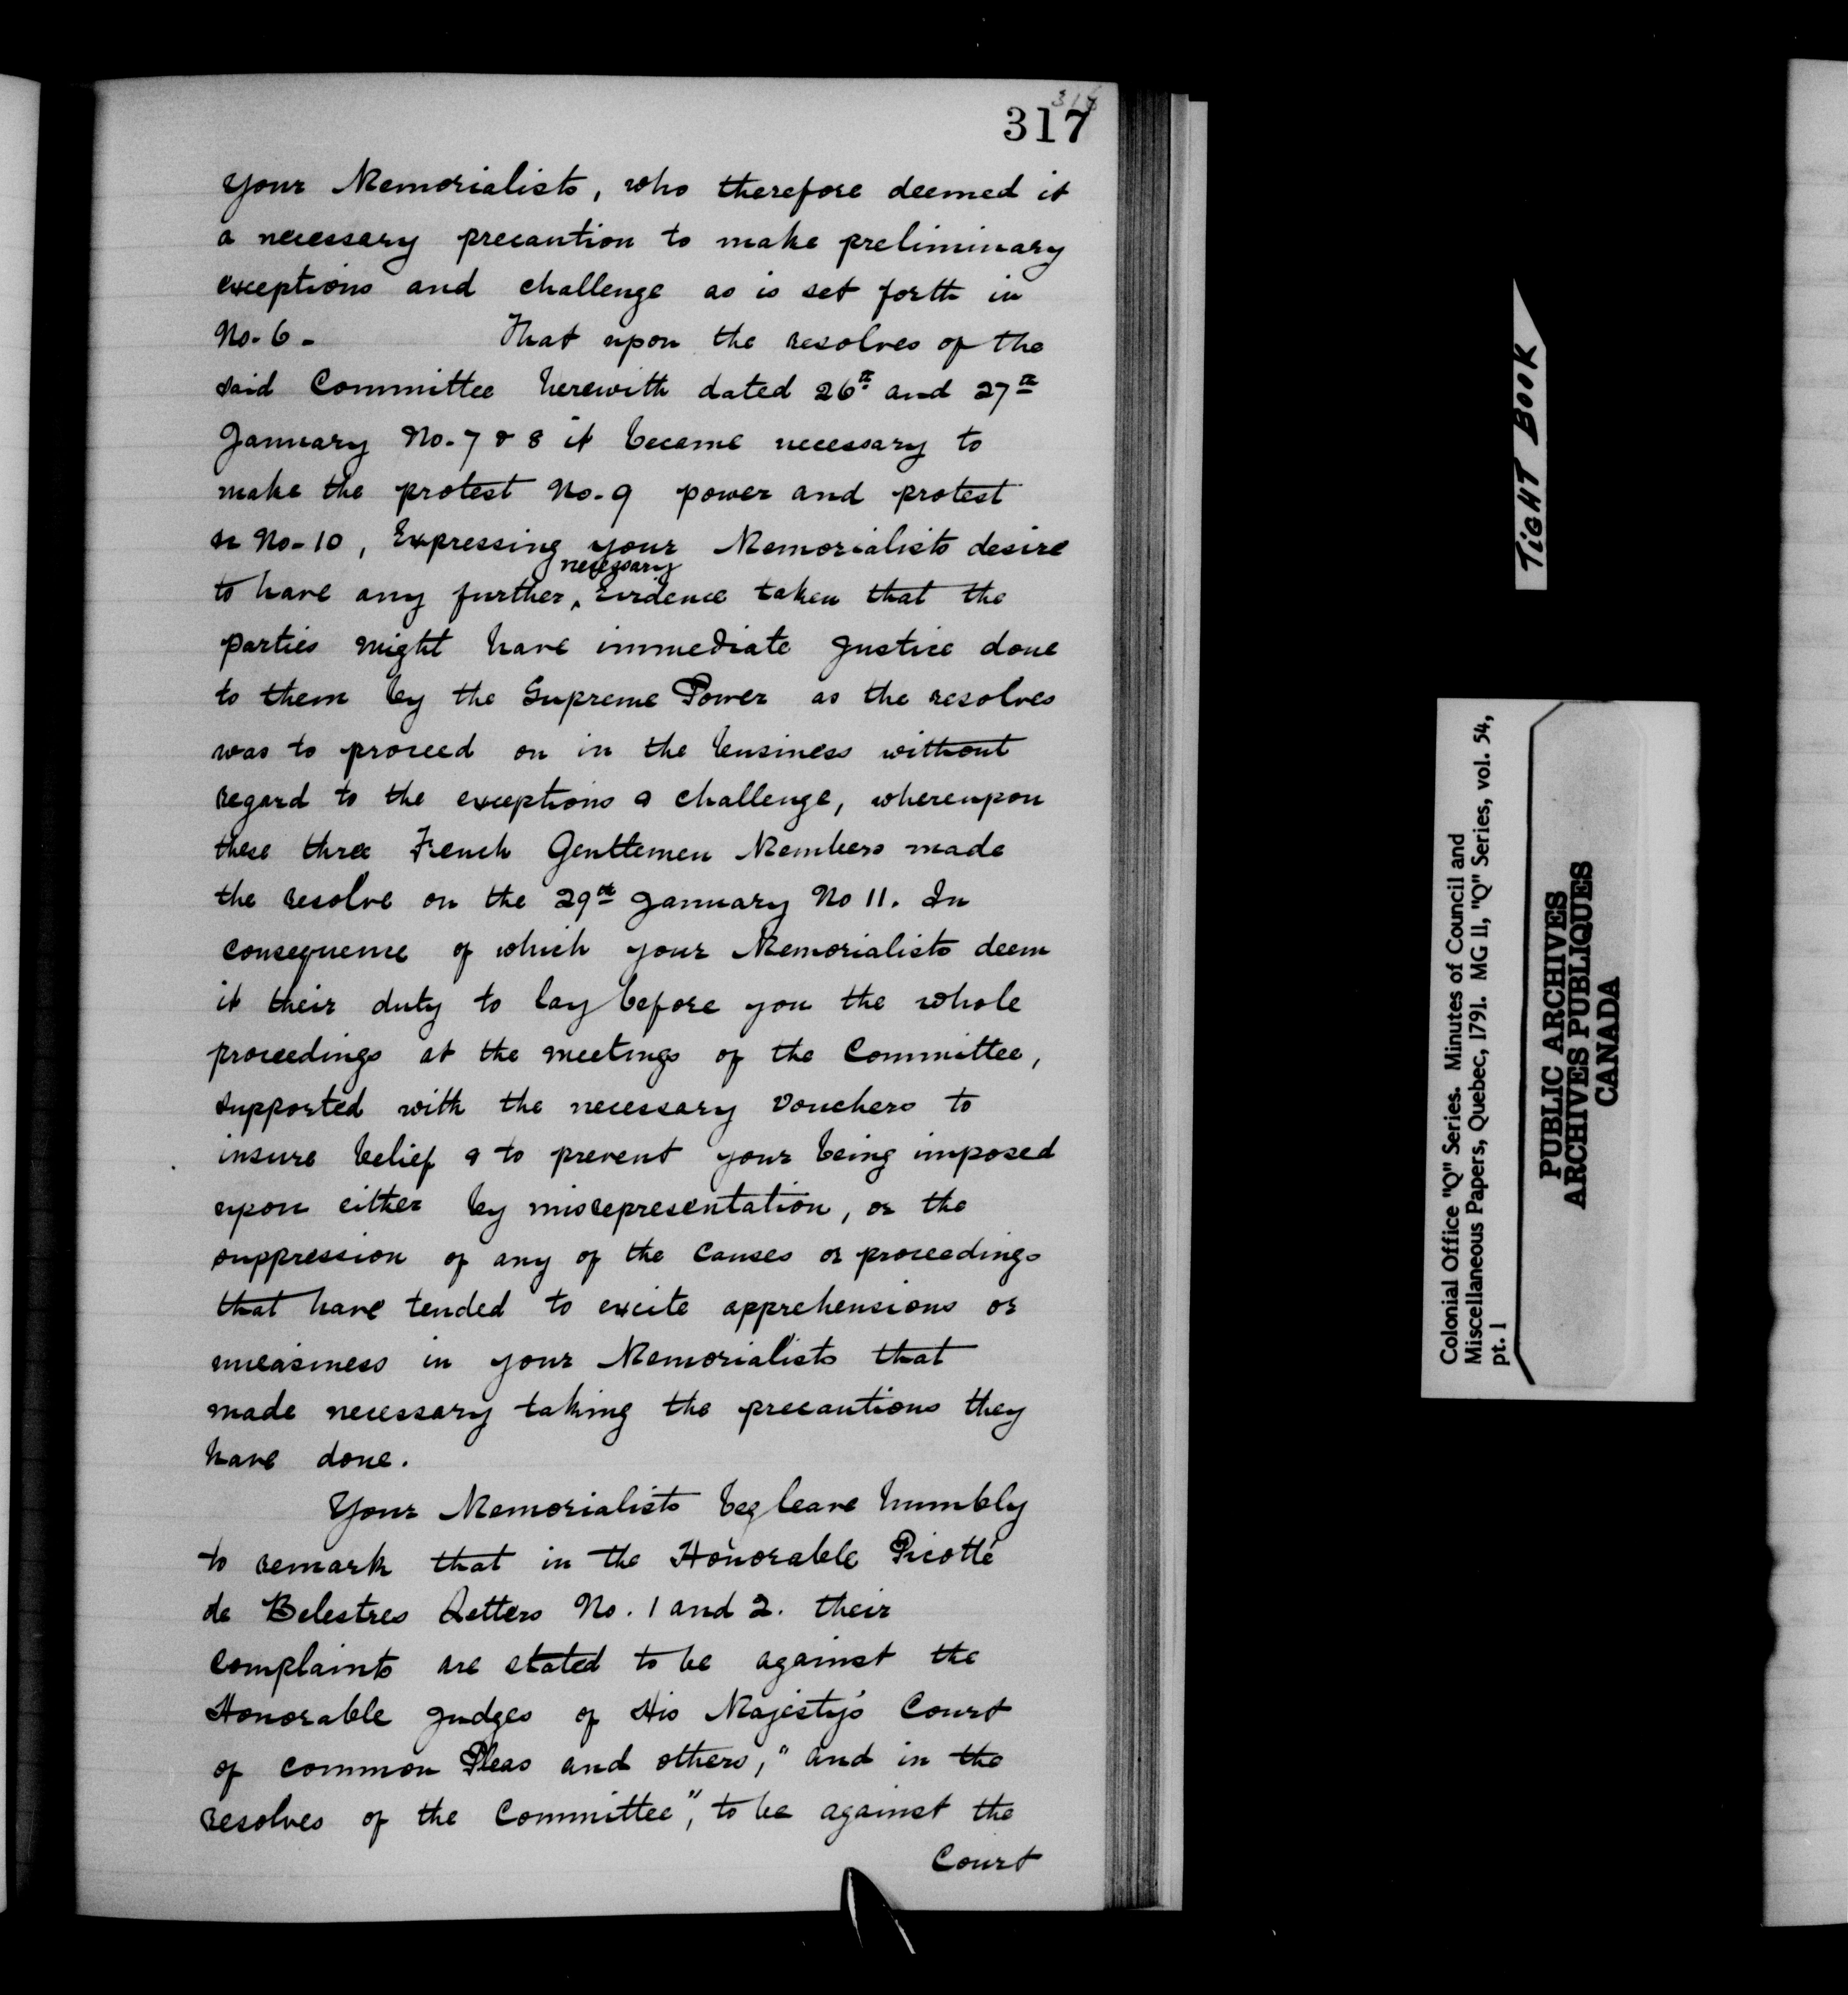 316
317
Your Memorialists, who therefore deemed it
a necessary precaution to make preliminary
exceptions and challenge as is set forth in
No. 6 - That upon the resolves of the
said Committee herewith dated 26th and 27th
January No. 7 & 8 it became necessary to
make the protest No. 9 power and protest
No. 10, Expressing your Memorialists desire
necessary
to have any further ^ Evidence taken that the
parties might have immediate Justice done
to them by the Supreme Power as the resolves
was to proceed on in the business without
regard to the exceptions & challenge, whereupon
these three French Gentlemen Members made
the resolve on the 29th January No 11. In
consequence of which your Memorialists deem
it their duty to lay before you the whole
proceedings at the meetings of the Committee,
supported with the necessary Vouchers to
insure belief & to prevent your being imposed
upon either by misrepresentation, or the
suppression of any of the Causes or proceedings
that have tended to excite apprehensions or
uneasiness in your Memorialists that
made necessary taking the precautions they
have done.
Your Memorialists beg leave humbly
to remark that in the Honorable Picotté
de Belestres Letters No. 1 and 2. their
complaints are stated to be against the
Honorable Judges of His Majesty's Court
of common Pleas and others," and in the
resolves of the Committee", to be against the
Court
TIGHT BOOK
Colonial Office "Q" Series. Minutes of Council and
Miscellaneous Papers, Quebec, 1791. MG 11, "Q" Series, vol. 54,
pt. 1
PUBLIC ARCHIVES
ARCHIVES PUBLIQUES
CANADA